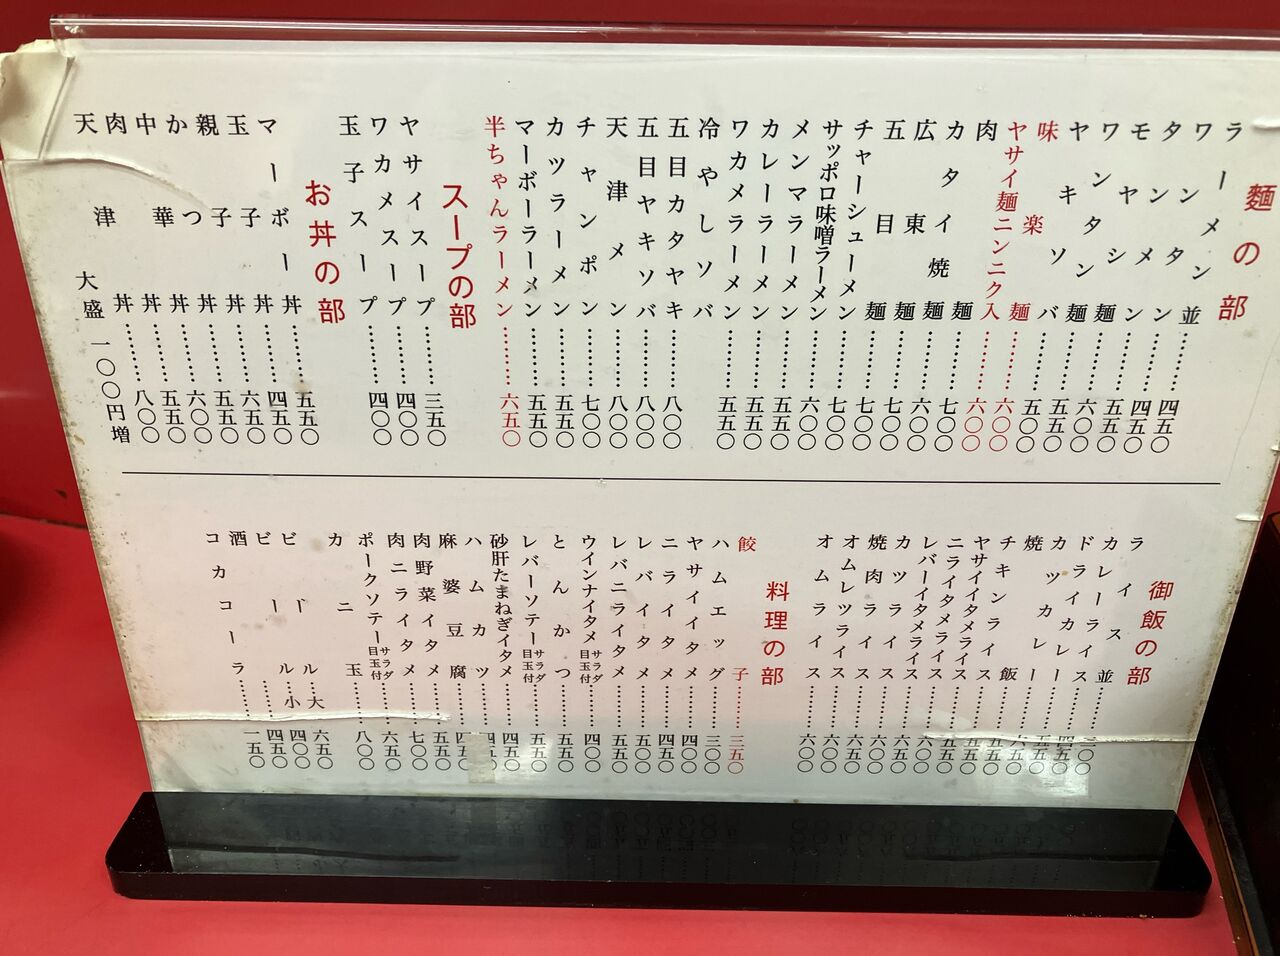 麺の部
ラーメン並………四五〇
ワンタン………四五〇
タンメン………五五〇
モヤシ麺………六〇〇
ワンタン麺………五五〇
ヤキソバ………五〇〇
味楽麺………六〇〇
ヤサイ麺ニンニク入………六〇〇
肉麺………七〇〇
カタイ焼麺………六〇〇
広東麺………七〇〇
五目麺………七〇〇
チャーシューメン………七〇〇
サッポロ味噌ラーメン………六〇〇
メンマラーメン………五五〇
カレーラーメン………五五〇
ワカメラーメン………五五〇
冷やしソバ
五目カタヤキ………八〇〇
五目ヤキソバ………八〇〇
天津メン………八〇〇
チャンポン………七〇〇
カツラーメン………五五〇
マーボーラーメン………五五〇
半ちゃんラーメン………六五〇
スープの部
ヤサイスープ………三五〇
ワカメスープ………四〇〇
玉子スープ………四〇〇
お丼の部
マーボー丼………五五〇
玉子丼………四五〇
親子丼………六五〇
かつ丼………五五〇
中華丼………六〇〇
肉丼………五五〇
天津丼………八〇〇
大盛一〇〇円増
御飯の部
ライス並………二〇〇
カレーライス………四五〇
ドライカレー………五五〇
カツカレー………六五〇
焼飯………五五〇
チキンライス………五五〇
ヤサイイタメライス………五五〇
ニライタメライス………六〇〇
レバーイタメライス………六五〇
カツライス………六〇〇
焼肉ライス………六五〇
オムレツライス………六〇〇
オムライス………六〇〇
料理の部
餃子………三五〇
ハムエッグ………三〇〇
ヤサイイタメ………四〇〇
ニライタメ………四五〇
レバイタメ………五五〇
レバニライタメ………五五〇
ウインナイタメ サラダ目玉付………四〇〇
とんかつ………五五〇
レバーソテー サラダ目玉付………五五〇
砂肝たまねぎイタメ………四五〇
ハムカツ………四五〇
麻婆豆腐………四五〇
肉野菜イタメ………五〇〇
肉ニライタメ………七〇〇
ポークソテー サラダ目玉付………六五〇
カニ玉………八〇〇
ビール大………六五〇
ビール小………四〇〇
酒………四五〇
コカコーラ………一五〇